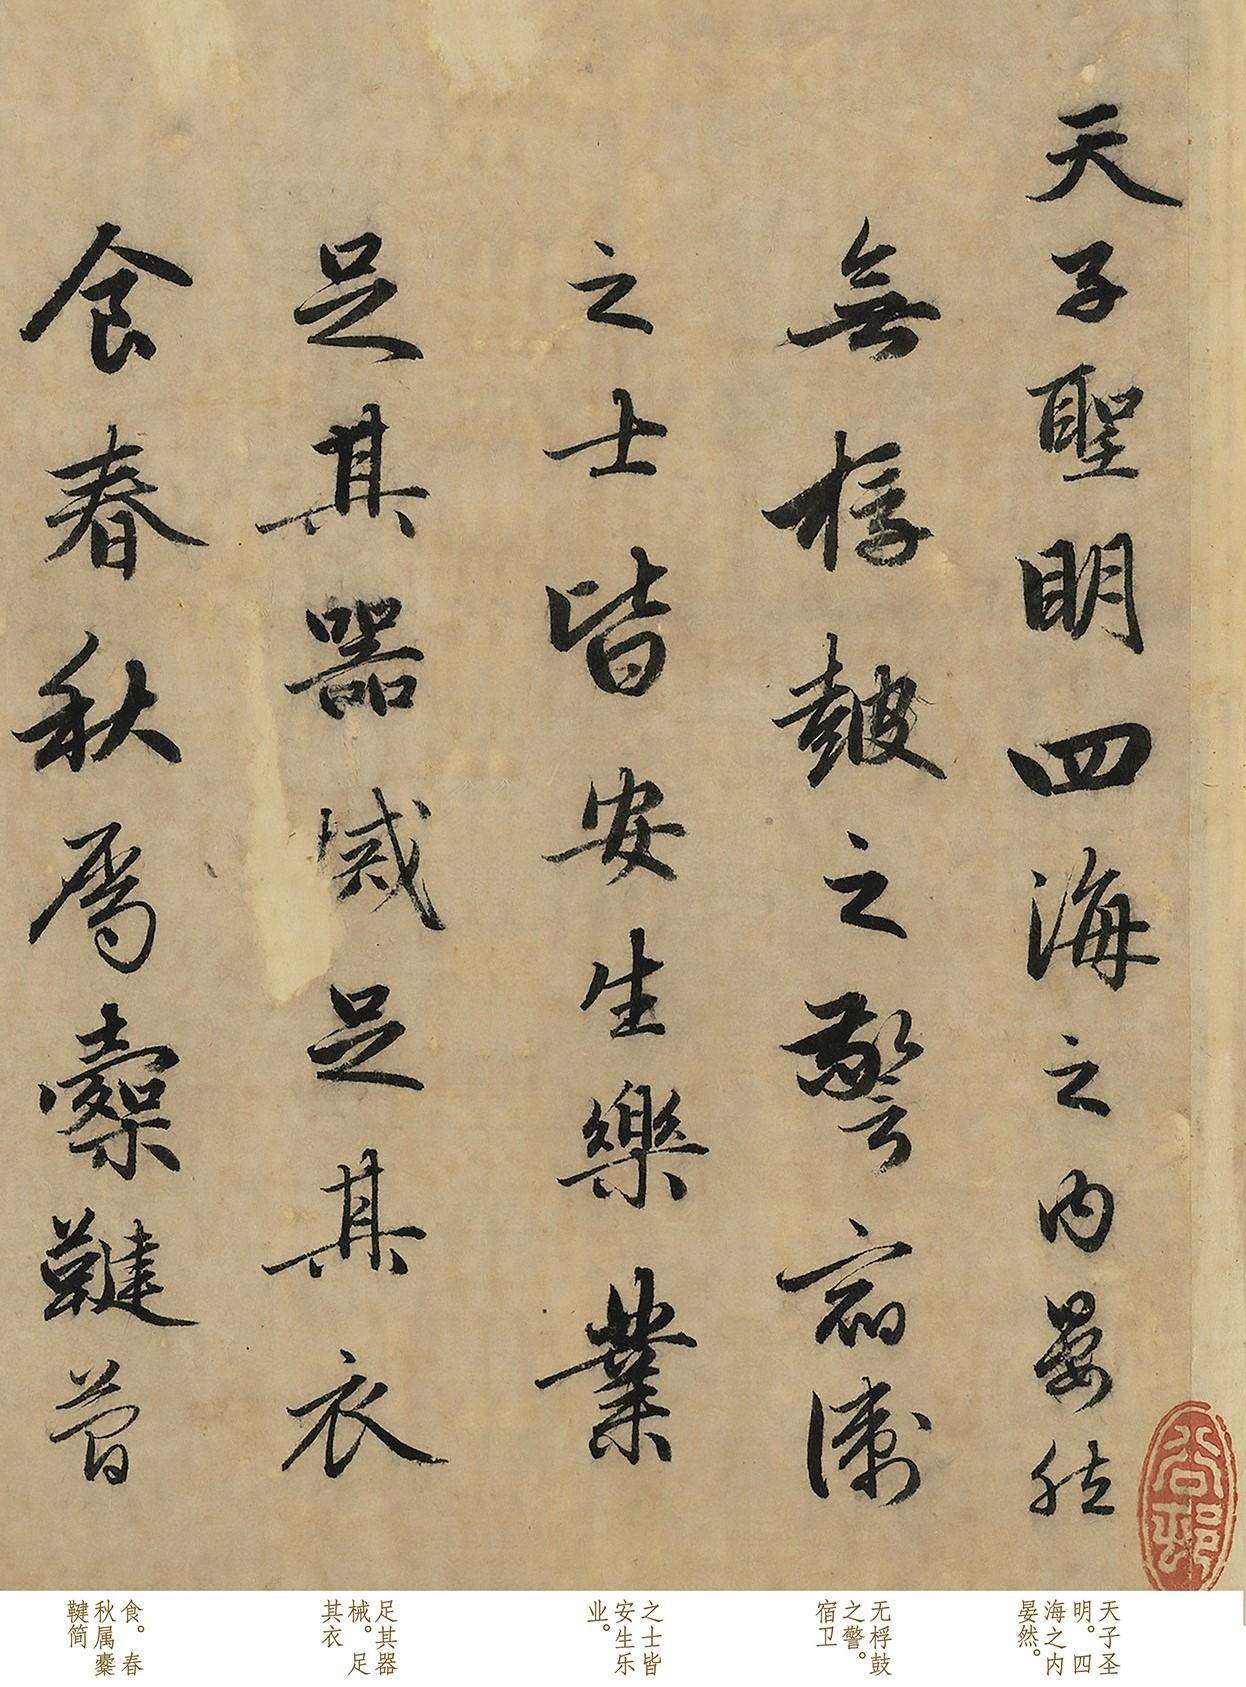 天子聖明四海之內晏然
無桴鼓之警宿衛
之士皆安生樂業
足其器械足其衣
食春秋属櫜鞬簡
天子圣
明。四
海之内
晏然。
无桴鼓
之警。
宿卫
之士皆
安生乐
业。
足其器
械。足
其衣
食。春
秋属櫜
鞬简